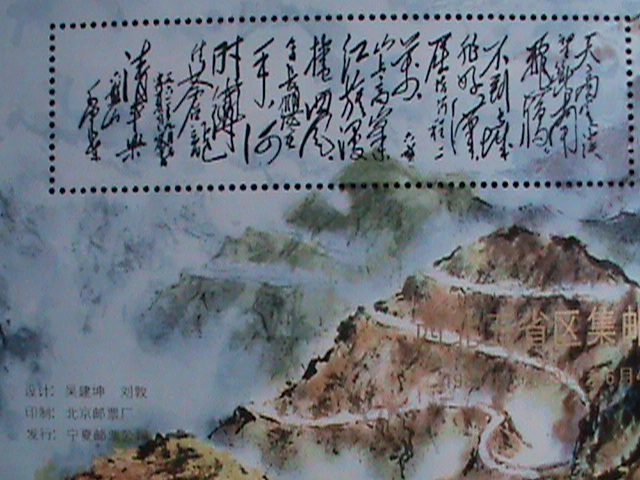 天高云淡
望断南
不到长城
非好汉
屈指行程二
万
六盘
山上高峰
红旗漫
卷西风
今日长缨在
手 何
时缚
住苍龙
清平乐
六盘山
毛泽东
省区集邮
设计: 吴建坤 刘敦
印制: 北京邮票厂
发行: 宁夏邮票公司